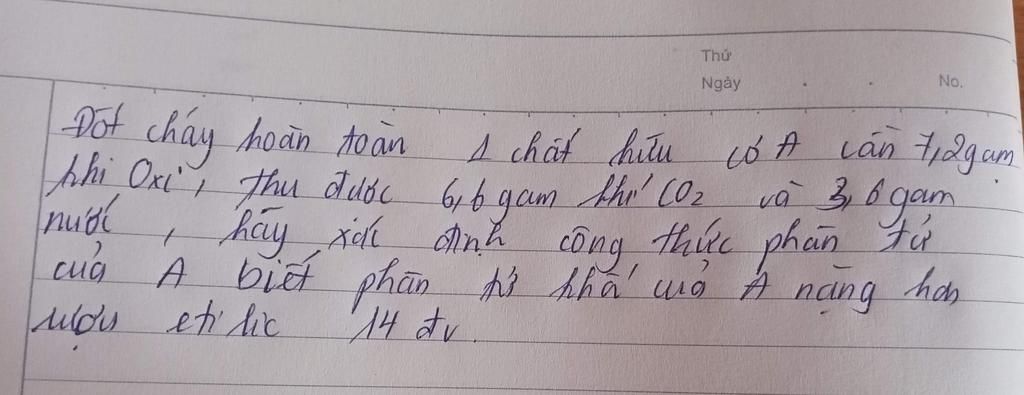 Thứ
Ngày . . No.
Đốt cháy hoàn toàn 1 chất hữu cơ A cần 7,2gam
khi Oxi, thu được 6,6 gam khí CO2 và 3,6 gam
nước, hãy xác định công thức phân tử
của A biết phân tử khố của A nặng hơn
rượu etilic 14 đv.